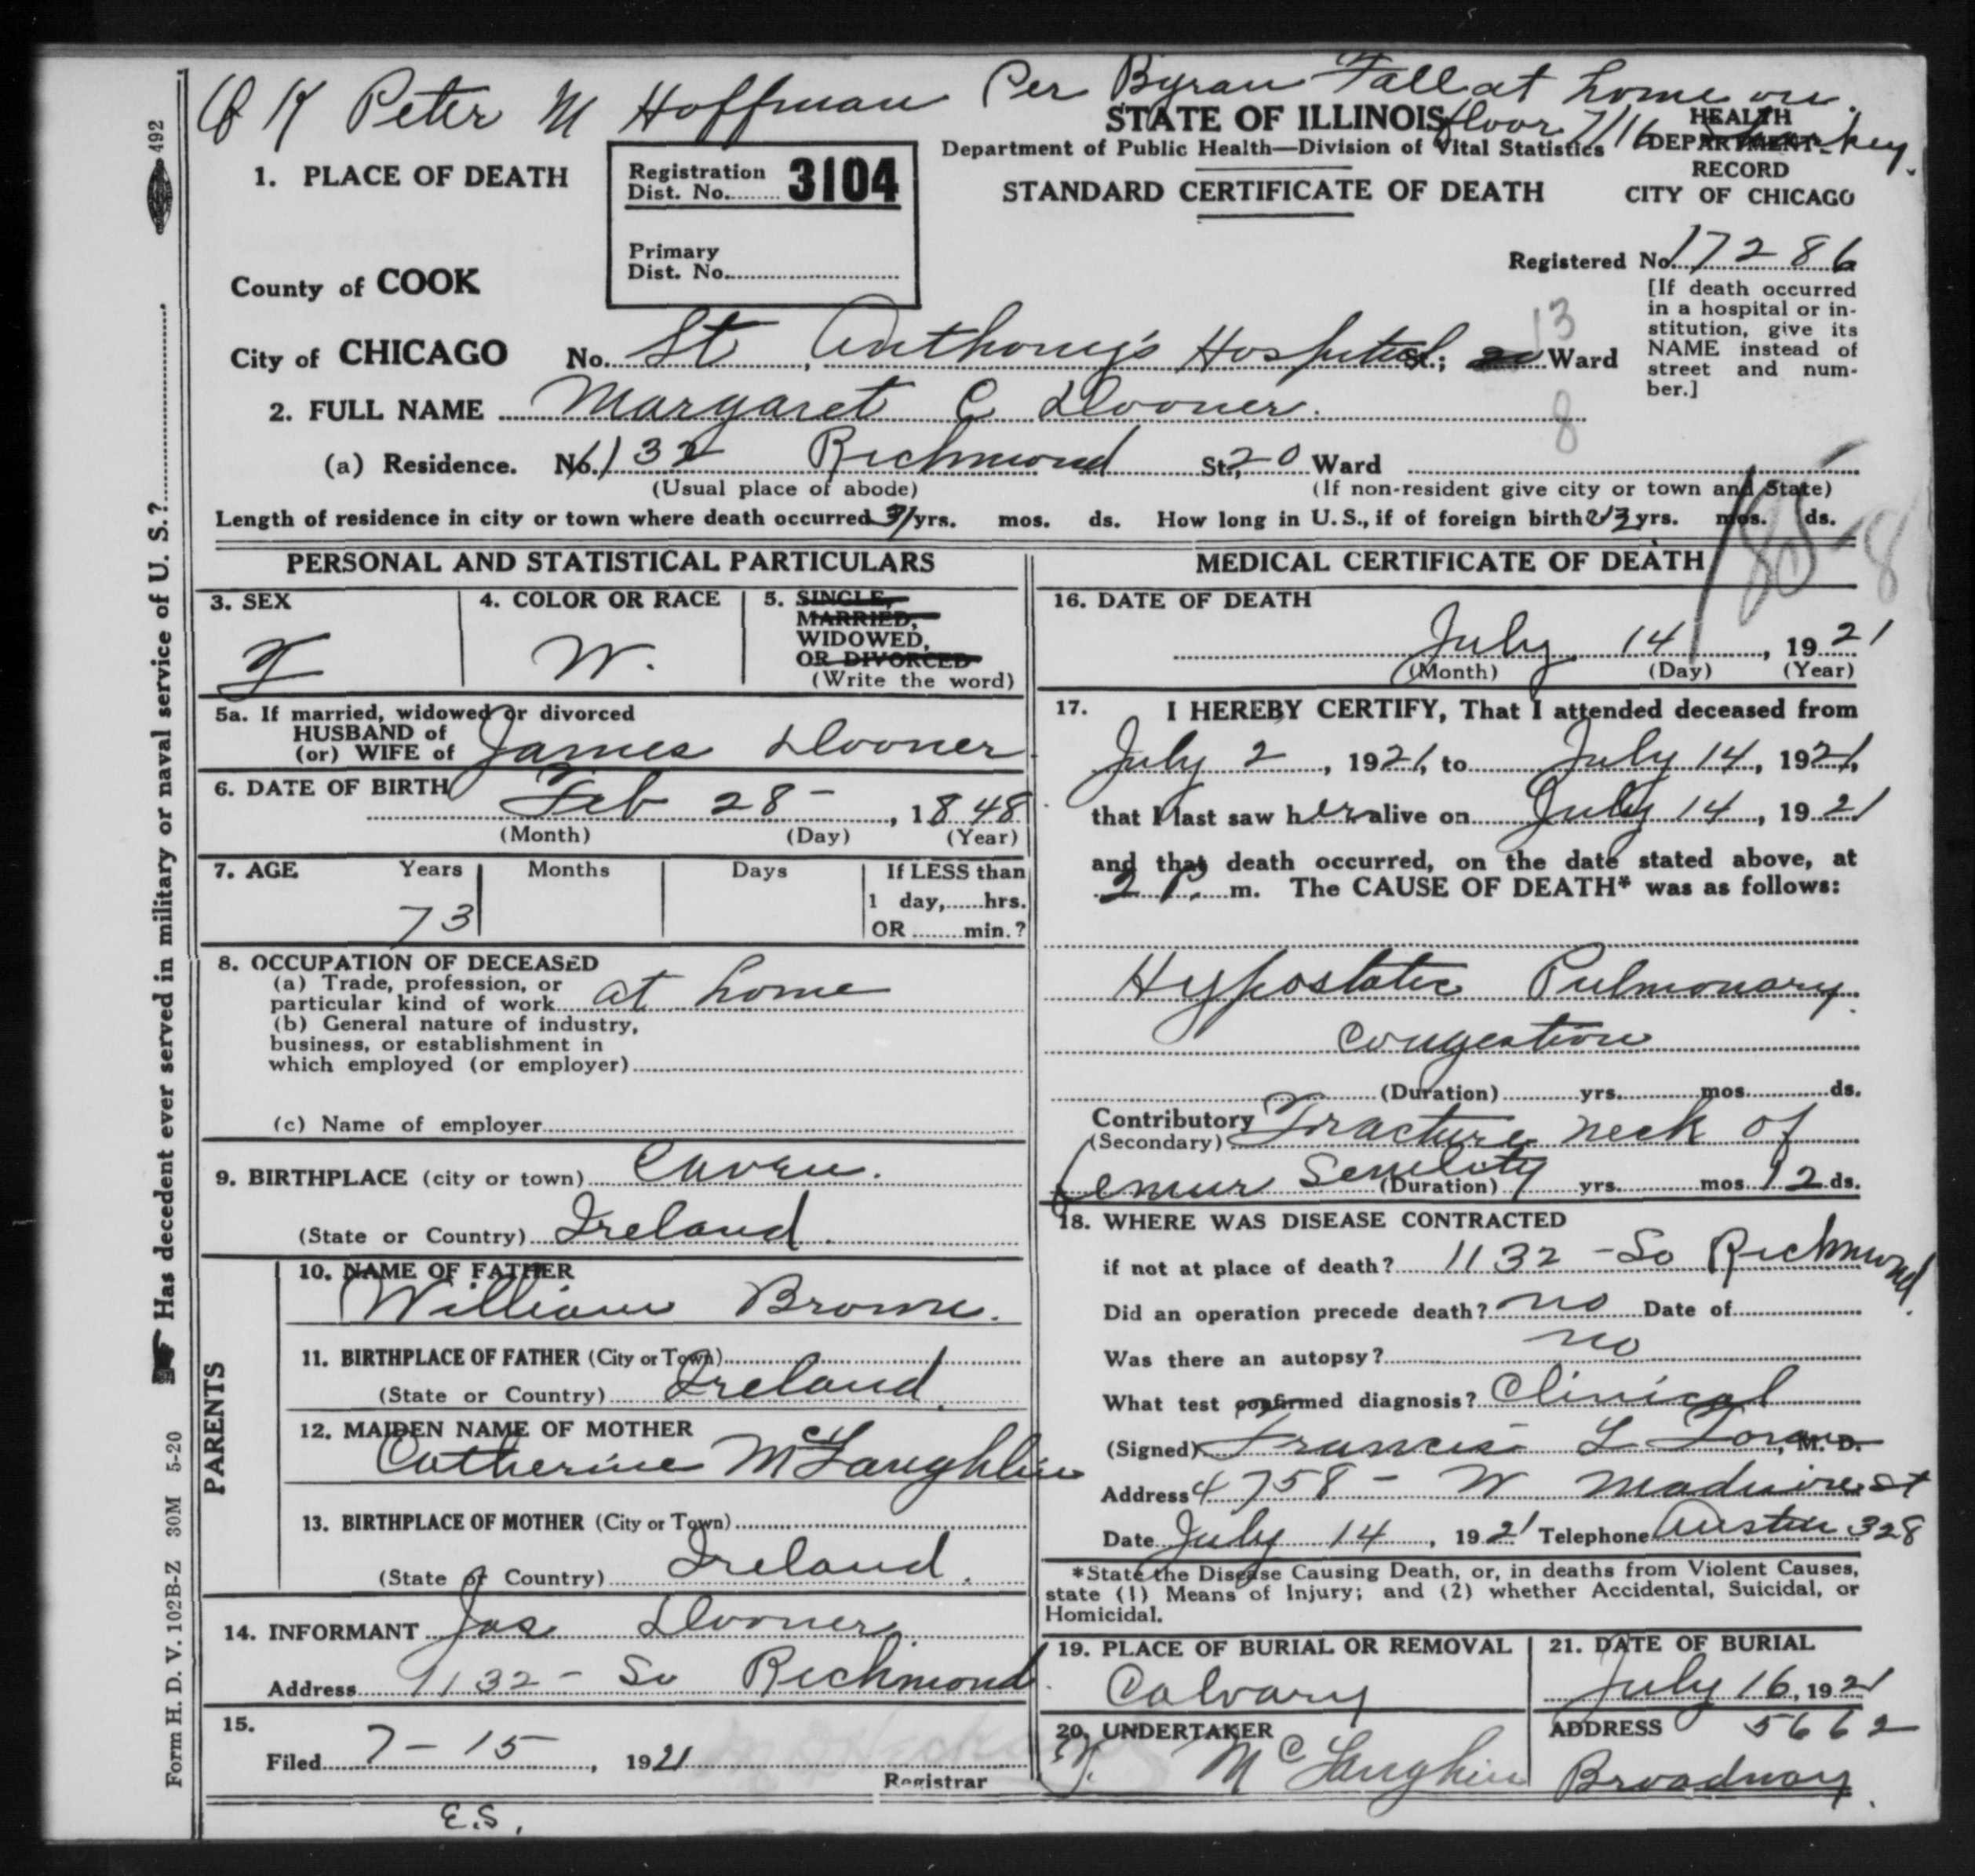 O K Peter M Hoffman Per Byran Fall at home on
floor 7/16
STATE OF ILLINOIS
Department of Public Health—Division of Vital Statistics
STANDARD CERTIFICATE OF DEATH
HEALTH
DEPARTMENT
RECORD
CITY OF CHICAGO
492
1. PLACE OF DEATH
Registration
Dist. No. 3104
Primary
Dist. No.
Registered No. 17286
[If death occurred
in a hospital or in-
stitution, give its
NAME instead of
street and num-
ber.]
County of COOK
City of CHICAGO No. St, Anthony's Hospital St.; Ward
13
2. FULL NAME Margaret C Dooner.
8
(a) Residence. No. 1132 Richmond St., 20 Ward
(Usual place of abode) (If non-resident give city or town and State)
Length of residence in city or town where death occurred yrs. mos. ds. How long in U. S., if of foreign birth? yrs. mos. ds.
PERSONAL AND STATISTICAL PARTICULARS
3. SEX
F
4. COLOR OR RACE
W.
5. SINGLE,
MARRIED,
WIDOWED,
OR DIVORCED
(Write the word)
5a. If married, widowed or divorced
HUSBAND of
(or) WIFE of James Dooner
6. DATE OF BIRTH Feb 28 - , 1848
(Month) (Day) (Year)
7. AGE Years Months Days If LESS than
1 day,......hrs.
73
OR ........min.?
8. OCCUPATION OF DECEASED
(a) Trade, profession, or
particular kind of work at home
(b) General nature of industry,
business, or establishment in
which employed (or employer)
(c) Name of employer
9. BIRTHPLACE (city or town) Caven.
(State or Country) Ireland.
PARENTS
10. NAME OF FATHER
William Brown.
11. BIRTHPLACE OF FATHER (City or Town)
(State or Country) Ireland.
12. MAIDEN NAME OF MOTHER
Catherine McLaughlin
13. BIRTHPLACE OF MOTHER (City or Town)
(State or Country) Ireland.
14. INFORMANT Jas Dooner.
Address 1132 - So Richmond
15.
Filed 7-15 , 1921
Registrar
E.S.
MEDICAL CERTIFICATE OF DEATH
16. DATE OF DEATH
July 14 , 1921
(Month) (Day) (Year)
17. I HEREBY CERTIFY, That I attended deceased from
July 2 , 1921, to July 14, 1921,
that I last saw her alive on July 14, 1921
and that death occurred, on the date stated above, at
2 P. m. The CAUSE OF DEATH* was as follows:
Hypostatic Pulmonary
Congestion
(Duration) yrs. mos. ds.
Contributory Fracture neck of
(Secondary)
femur Senility
(Duration) yrs. mos. 12 ds.
18. WHERE WAS DISEASE CONTRACTED
if not at place of death? 1132 - So Richmond.
Did an operation precede death? no Date of
Was there an autopsy? no
What test confirmed diagnosis? Clinical
(Signed) Francis L Foran, M. D.
Address 4758 - W st
Date July 14 , 1921 Telephone Austin 328
*State the Disease Causing Death, or, in deaths from Violent Causes,
state (1) Means of Injury; and (2) whether Accidental, Suicidal, or
Homicidal.
19. PLACE OF BURIAL OR REMOVAL
Calvary
21. DATE OF BURIAL
July 16, 1921
20. UNDERTAKER
McLaughlin
ADDRESS 5662
Broadway.
Has decedent ever served in military or naval service of U. S.?
Form H. D. V. 102B-Z 30M 5-20